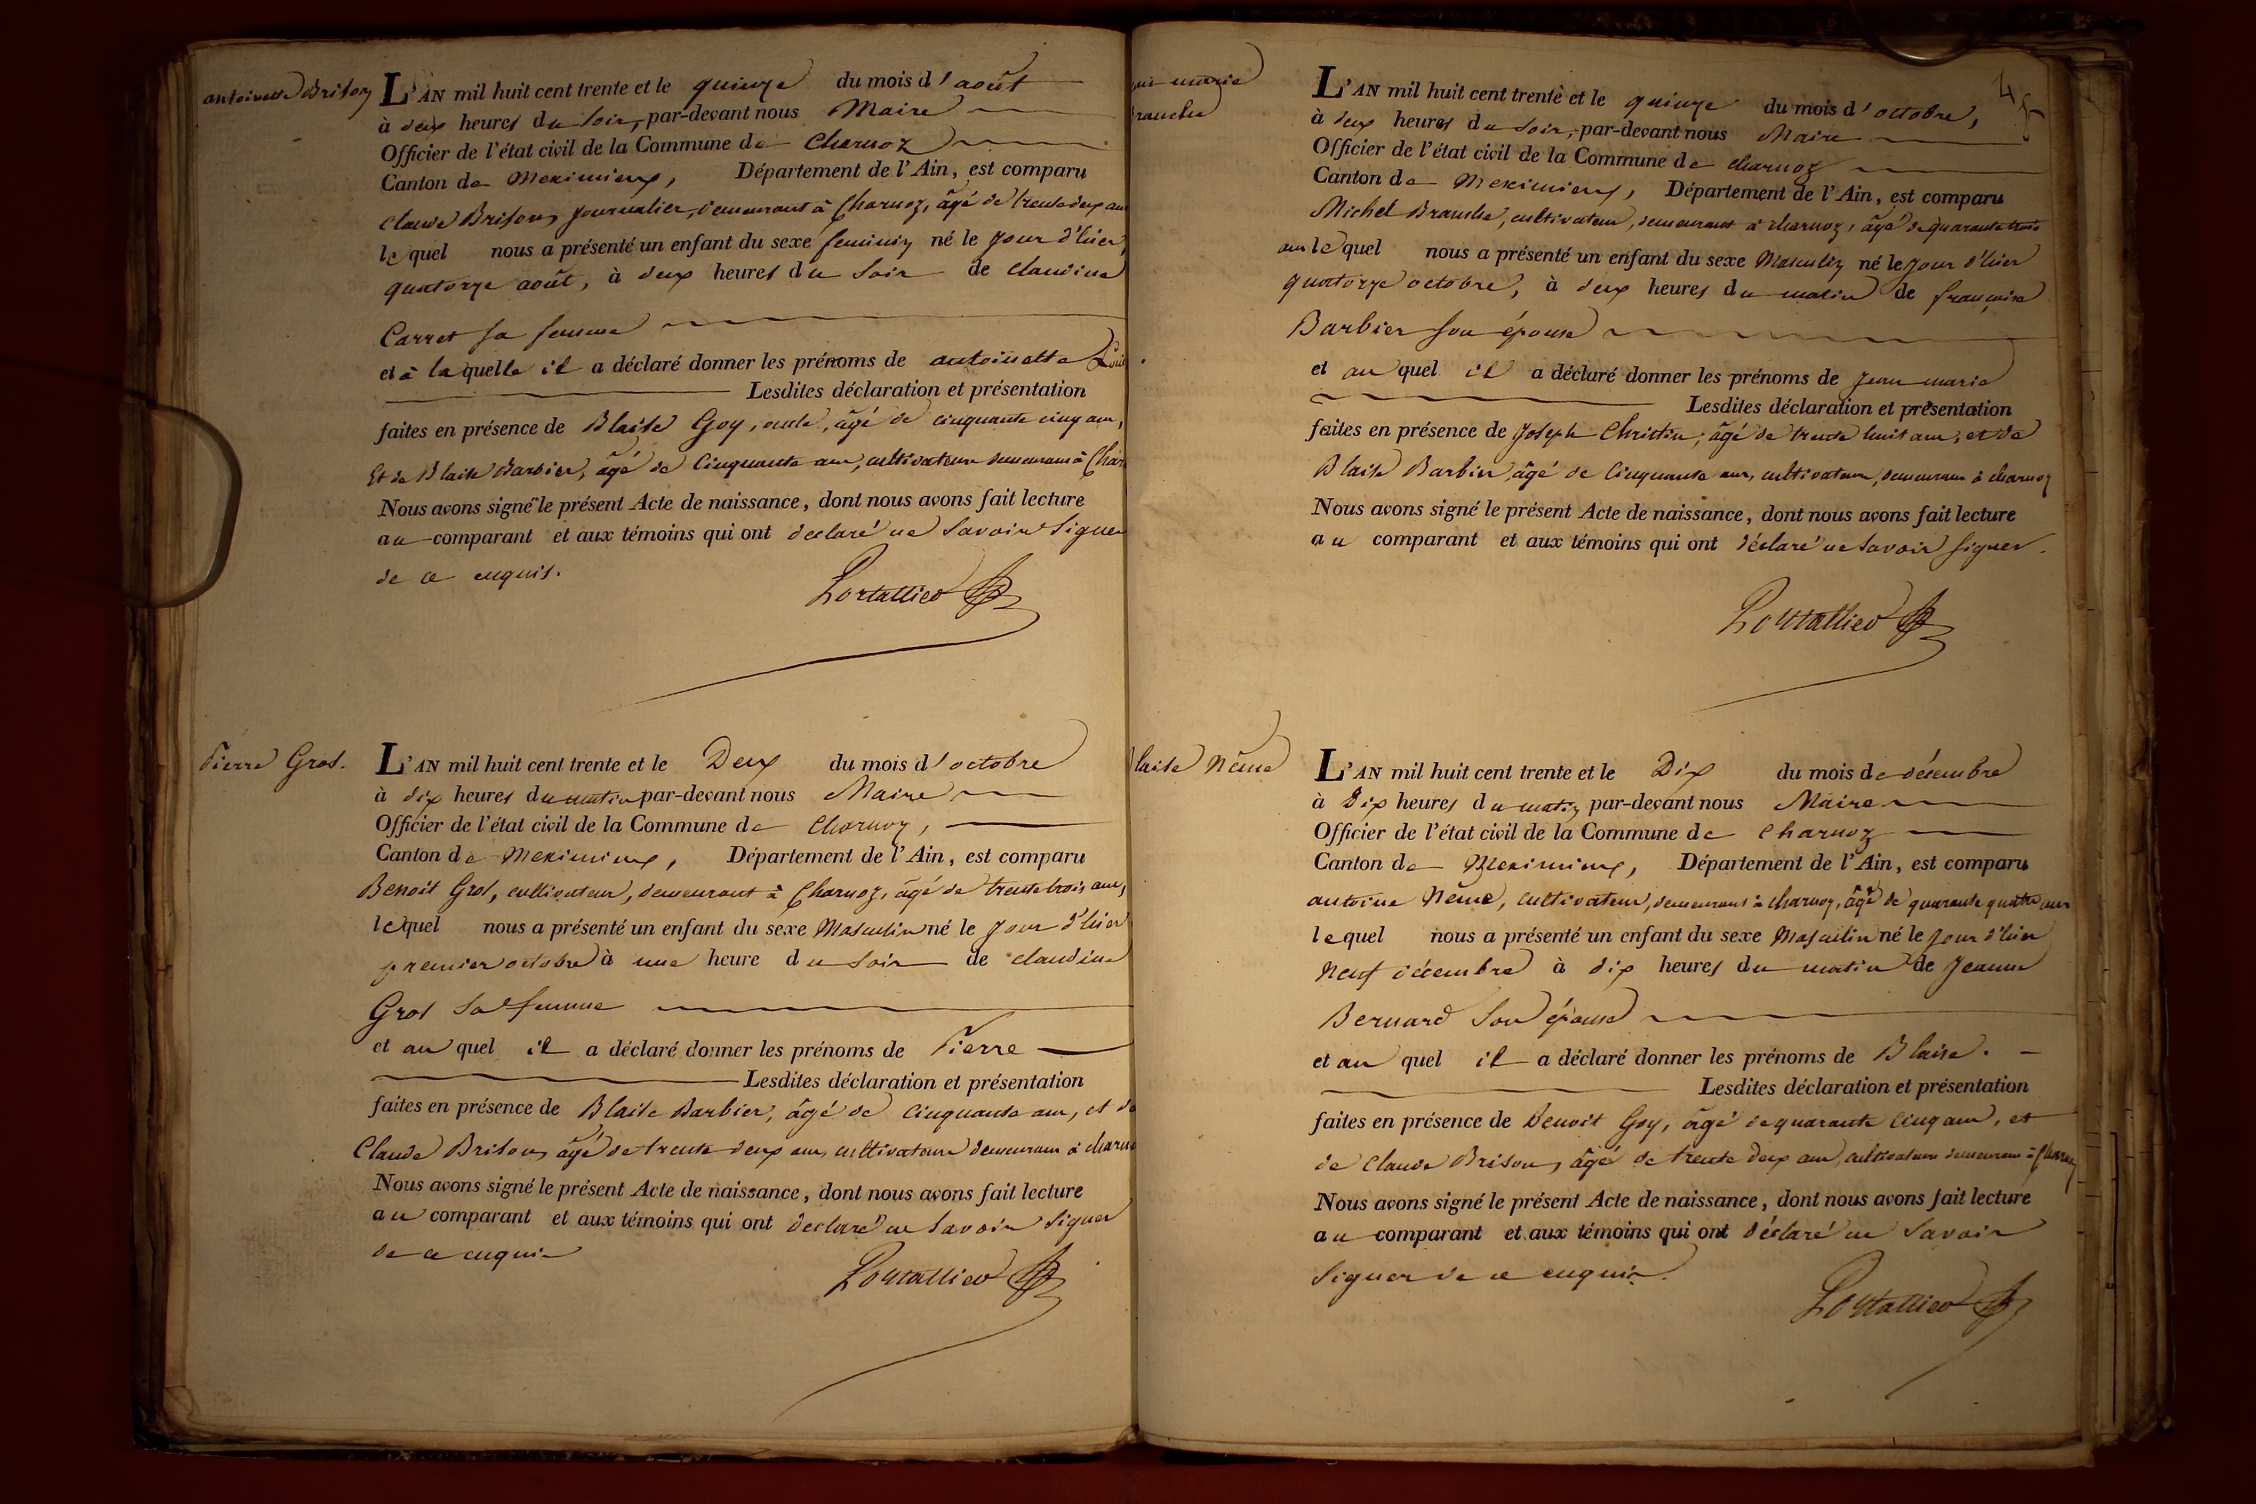 antoinette Brison
L'AN mil huit cent trente et le quinze du mois d'août
à deux heures du soir, par-devant nous Maire
Officier de l'état civil de la Commune de Charnoz
Canton de Meximieux, Département de l'Ain, est comparu
Claude Brison, journalier, demeurant à Charnoz, âgé de trente deux ans
lequel nous a présenté un enfant du sexe feminin né le jour d'hier
quatorze août, à deux heures du soir de claudine
Carret sa femme
et à laquelle il a déclaré donner les prénoms de antoinette
Lesdites déclaration et présentation
faites en présence de Blaise Goy, âgé de cinquante cinq ans,
Et de Blaise Barbier, âgé de Cinquante ans, cultivateurs demeurans à Char
Nous avons signé le présent Acte de naissance, dont nous avons fait lecture
au comparant et aux témoins qui ont declaré ne Savoir Signer
de ce enquis.
Portallier
Pierre Gros.
L'AN mil huit cent trente et le Deux du mois d'octobre
à dix heures du matin par-devant nous Maire
Officier de l'état civil de la Commune de Charnoz,
Canton de Meximieux, Département de l'Ain, est comparu
Benoit Gros, cultivateur, demeurant à Charnoz, âgé de trente trois ans,
lequel nous a présenté un enfant du sexe Masculin né le jour d'hier
premier octobre à une heure du soir de claudine
Gros sa femme
et au quel il a déclaré donner les prénoms de Pierre
Lesdites déclaration et présentation
faites en présence de Blaise Barbier, âgé de Cinquante ans, et de
Claude Brison, âgé de trente deux ans, cultivateurs demeurans à charno
Nous avons signé le présent Acte de naissance, dont nous avons fait lecture
au comparant et aux témoins qui ont declaré ne Savoir Signer
de ce enquis
Portallier
marie
ranche
L'AN mil huit cent trente et le quinze du mois d'octobre,
à deux heures du soir, par-devant nous Maire
Officier de l'état civil de la Commune de charnoz
Canton de Meximieux, Département de l'Ain, est comparu
Michel Branche, cultivateur, demeurant à charnoz, âgé de quarante trois
ans lequel nous a présenté un enfant du sexe Masculin né le jour d'hier
quatorze octobre, à deux heures du matin de françoise
Barbier son épouse
et au quel il a déclaré donner les prénoms de jean marie
Lesdites déclaration et présentation
faites en présence de Joseph Christin, âgé de trente huit ans, et de
Blaise Barbier, âgé de Cinquante ans, cultivateurs, demeurans à charnoz
Nous avons signé le présent Acte de naissance, dont nous avons fait lecture
au comparant et aux témoins qui ont déclaré ne savoir signer.
Portallier
laise Nême
L'AN mil huit cent trente et le Dix du mois de décembre
à Dix heures du matin par-devant nous Maire
Officier de l'état civil de la Commune de Charnoz
Canton de Meximieux, Département de l'Ain, est comparu
antoine Nême, cultivateur, demeurant à charnoz, âgé de quarante quatre ans
lequel nous a présenté un enfant du sexe Masculin né le jour d'hier
Neuf décembre à dix heures du matin de Jeanne
Bernard Son épouse
et au quel il a déclaré donner les prénoms de Blaise.
Lesdites déclaration et présentation
faites en présence de Benoit Goy, âgé de quarante Cinq ans, et
de Claude Brison, âgé de trente deux ans, cultivateurs demeurans à Charnoz
Nous avons signé le présent Acte de naissance, dont nous avons fait lecture
au comparant et aux témoins qui ont déclaré ne Savoir
Signer de ce enquis.
Portallier